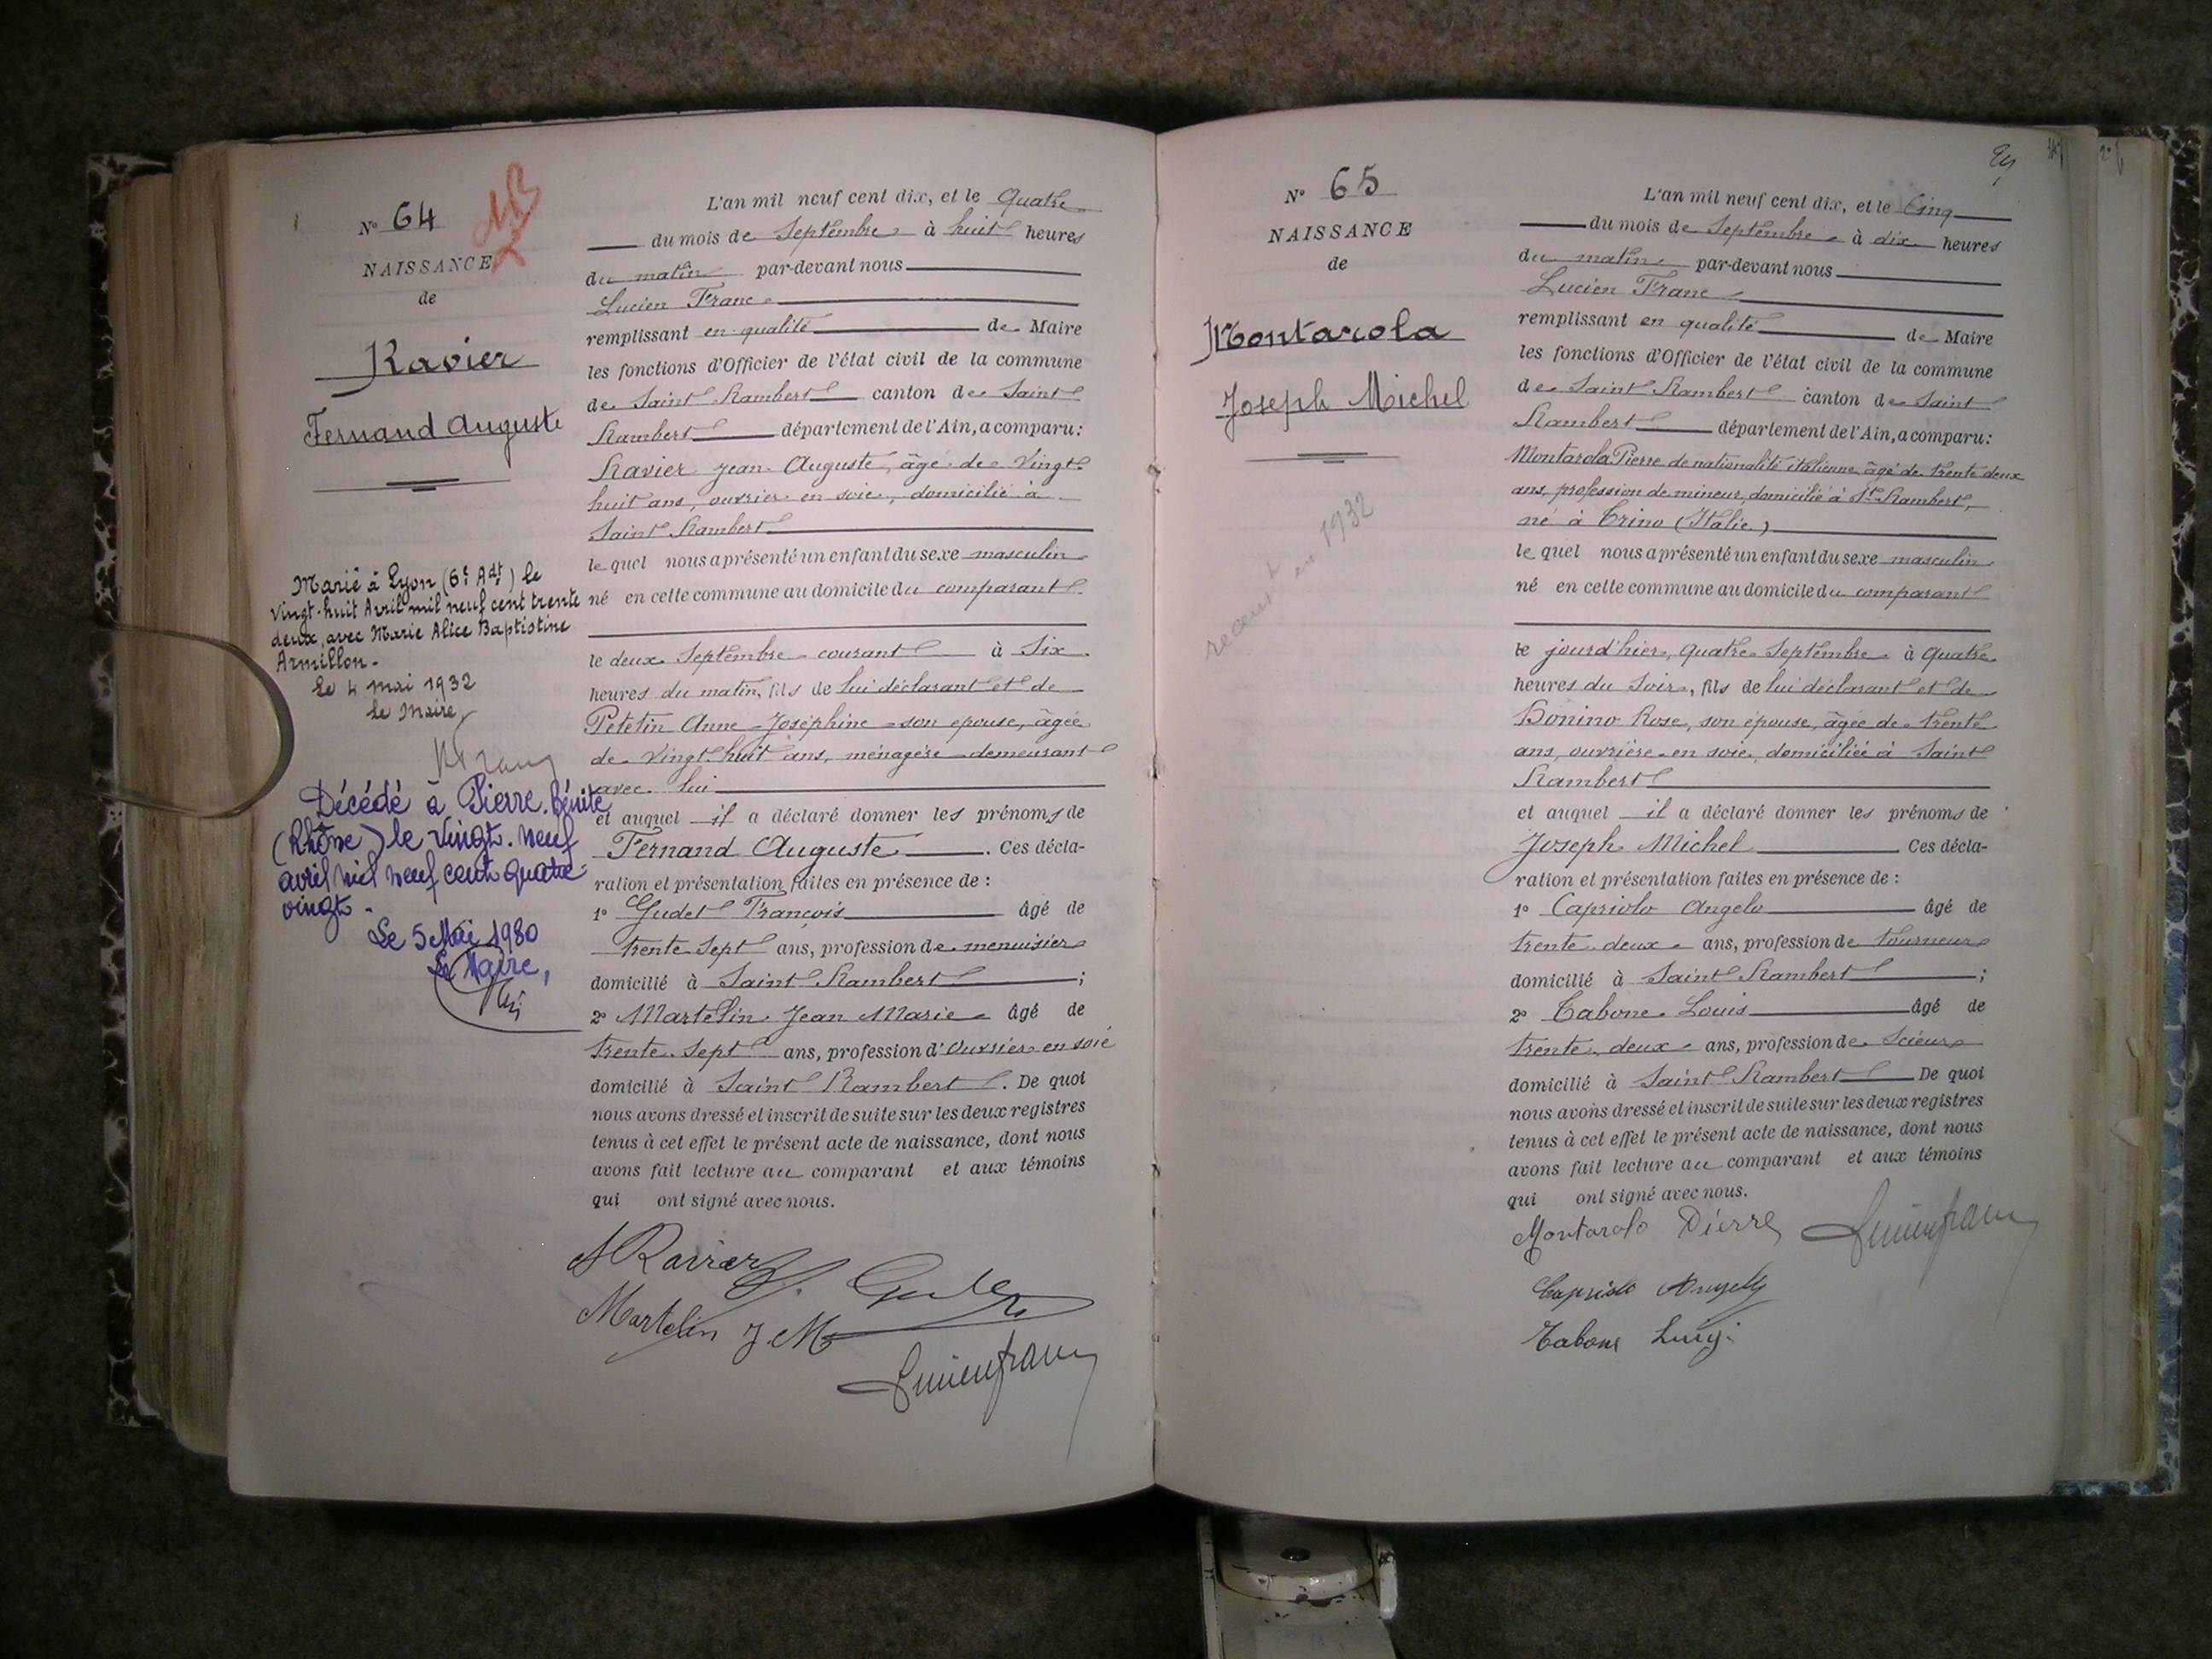 N° 64
NAISSANCE
de
Ravier
Fernand Auguste
Marié à Lyon (6e Adt) le
vingt-huit Avril mil neuf cent trente
deux, avec Marie Alice Baptistine
Armillon.
Le 4 mai 1932
Le Maire,
Décédé à Pierre-Bénite
(Rhône) le vingt-neuf
avril mil neuf cent quatre
vingt.
Le 5 Mai 1980
Le Maire,
L'an mil neuf cent dix, et le quatre
du mois de Septembre à huit heures
du matin par-devant nous
Lucien Franc
remplissant en qualité de Maire
les fonctions d'Officier de l'état civil de la commune
de Saint Rambert canton de Saint
Rambert département de l'Ain, a comparu:
Ravier Jean Auguste, âgé de vingt
huit ans, ouvrier en soie, domicilié à
Saint Rambert
le quel nous a présenté un enfant du sexe masculin
né en cette commune au domicile du comparant
le deux Septembre courant à Six
heures du matin, fils de lui déclarant et de
Petetin Anne Joséphine son épouse, âgée
de vingt huit ans, ménagère demeurant
avec lui
et auquel il a déclaré donner les prénoms de
Fernand Auguste. Ces décla-
ration et présentation faites en présence de:
1° Gudet François âgé de
trente sept ans, profession de menuisier
domicilié à Saint Rambert;
2° Martelin Jean Marie âgé de
trente sept ans, profession d'ouvrier en soie
domicilié à Saint Rambert. De quoi
nous avons dressé et inscrit de suite sur les deux registres
tenus à cet effet le présent acte de naissance, dont nous
avons fait lecture au comparant et aux témoins
qui ont signé avec nous.
A Ravier
Martelin J M
Lucien franc
N° 65
NAISSANCE
de
Montarola
Joseph Michel
recens en 1932
L'an mil neuf cent dix, et le Cinq
du mois de Septembre à dix heures
du matin par-devant nous
Lucien Franc
remplissant en qualité de Maire
les fonctions d'Officier de l'état civil de la commune
de Saint Rambert canton de Saint
Rambert département de l'Ain, a comparu:
Montarola Pierre de nationalité italienne âgé de trente deux
ans, profession de mineur, domicilié à St Rambert,
né à Trino (Italie)
le quel nous a présenté un enfant du sexe masculin
né en cette commune au domicile du comparant
le jourd'hier, quatre Septembre à quatre
heures du Soir, fils de lui déclarant et de
Bonino Rose, son épouse, âgée de trente
ans, ouvrière en soie, domiciliée à Saint
Rambert
et auquel il a déclaré donner les prénoms de
Joseph Michel Ces décla-
ration et présentation faites en présence de:
1° Capriolo Angelo âgé de
trente deux ans, profession de tourneur
domicilié à Saint Rambert;
2° Tabone Louis âgé de
trente deux ans, profession de Scieur
domicilié à Saint Rambert De quoi
nous avons dressé et inscrit de suite sur les deux registres
tenus à cet effet le présent acte de naissance, dont nous
avons fait lecture au comparant et aux témoins
qui ont signé avec nous.
Montarolo Pierre Lucien franc
Capriolo
Tabone Luigi